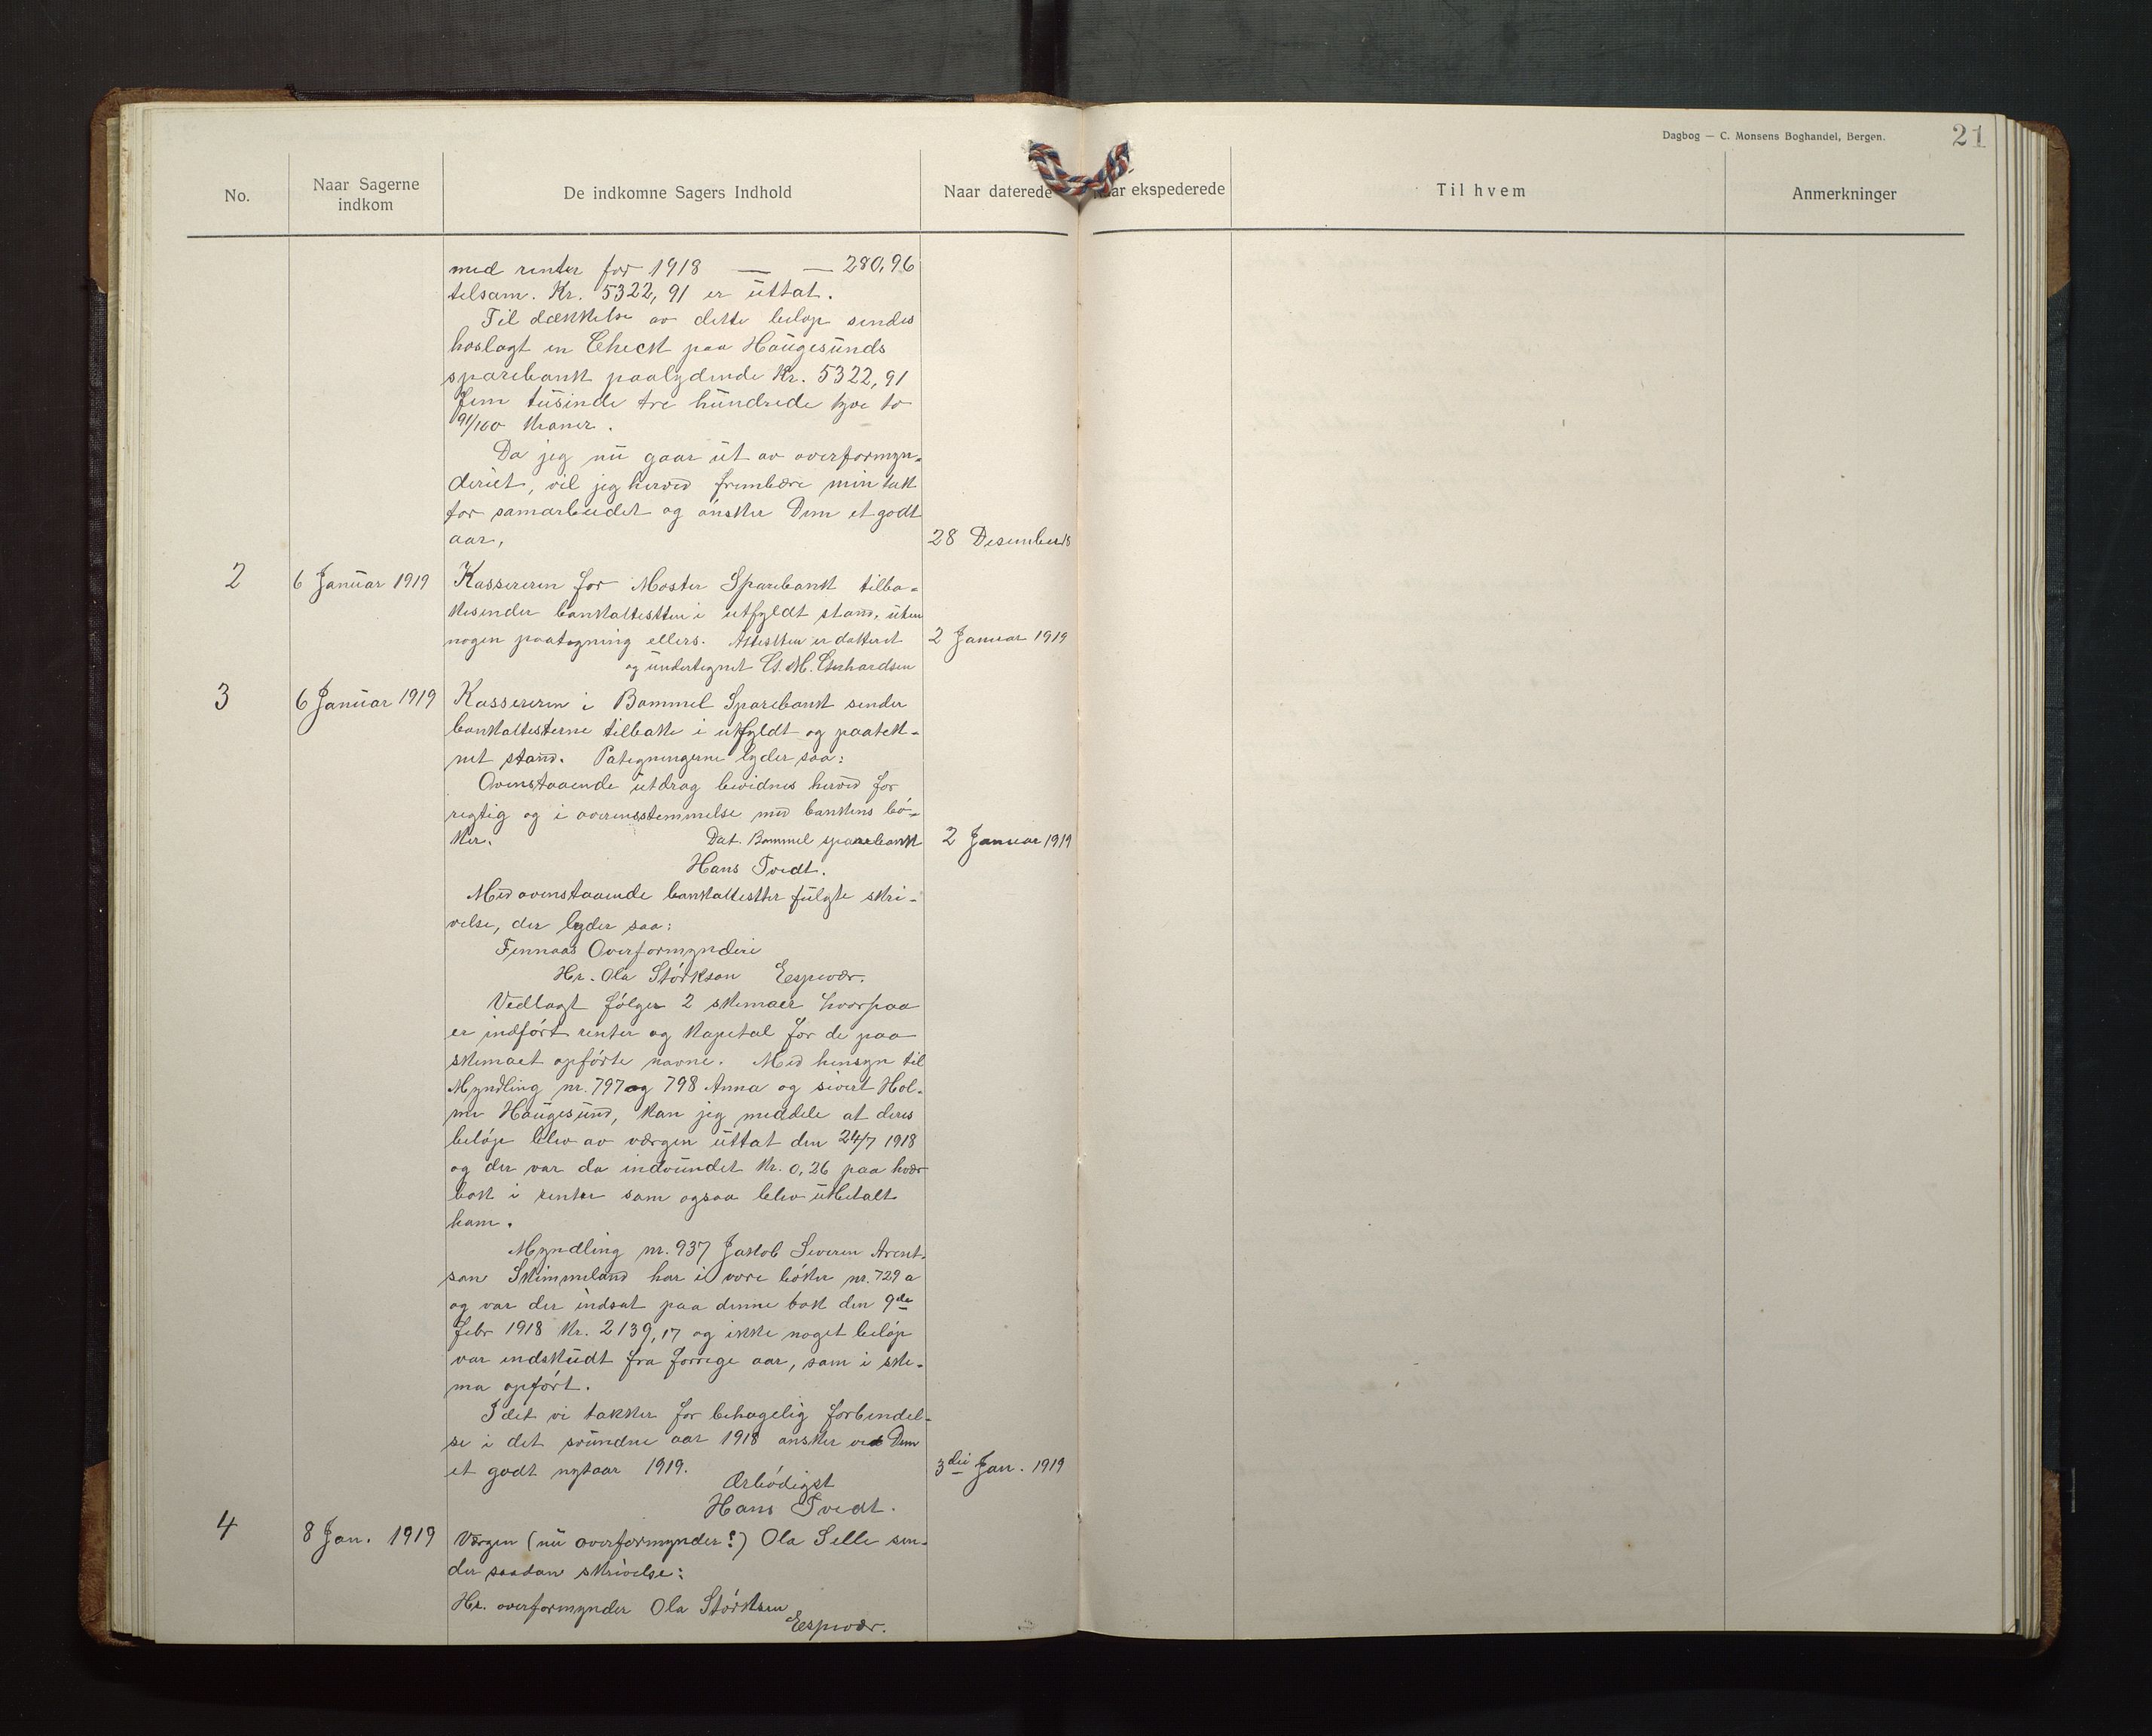 Dagbog — C. Monsens Boghandel, Bergen.
21
No.
Naar Sagerne
indkom
De indkomne Sagers Indhold
Naar daterede
Naar ekspederede
Til hvem
Anmerkninger
med renter for 1918 — — 280,96
tilsam. Kr. 5322,91 er uttat.
Til dækkelse av dette beløp sendes
hoslagt en Check paa Haugesunds
sparebank paalydende Kr. 5322,91
Fem tusinde tre hundrede tyve to
91/100 Kroner.
Da jeg nu gaar ut av overformyn-
deriet, vil jeg herved frembære min takk
for samarbeidet og ønsker Dem et godt
aar,
28 Desember 18
2
6 Januar 1919
Kassereren for Moster Sparebank tilba-
kesender bankattesten i utfyldt stand, uten
nogen paategning ellers. Attesten er dattert
2 Januar 1919
og undertegnet
3
6 Januar 1919
Kassereren i Bømmel Sparebank sender
bankattesterne tilbake i utfyldt og paatek-
net stand. Pategningerne lyder saa:
Ovenstaaende utdrag bevidnes herved for
regtig og i overensstemmelse med bankens bø-
ker. Dat. Bømmel sparebank
2 Januar 1919
Hans Tvedt.
Med ovenstaaende bankattester fulgte skri-
velse, der lyder saa:
Finnaas Overformynderi
Hr. Ola Størkson Espevær.
Vedlagt følger 2 skemaer hvorpaa
er indført renter og kapital for de paa
skemaet opførte navne. Med hensyn til
Myndling nr. 797 og 798 Anna og sivert Hol-
me Haugesund, kan jeg meddele at deres
beløp blev av værgen uttat den 24/7 1918
og der var da indvundet Kr. 0,26 paa hver
bok i renter som ogsaa blev utbetalt
ham.
Myndling nr. 937 Jakob Severin Arent-
son Skimmeland har i vore bøker nr. 729 a
og var der indsat paa denne bok den 9de
febr 1918 Kr. 2139,17 og ikke noget beløp
var indskudt fra forrige aar, som i ske-
ma opført.
I det vi takker for behagelig forbindel-
se i det svundne aar 1918 ønsker vi Dem
et godt nytaar 1919.
3die Jan. 1919
Ærbødigst
Hans Tvedt.
4
8 Jan. 1919
Værgen (nu overformynder?) Ola Selle sen-
der saadan skrivelse:
Hr. overformynder Ola Størksen
Espevær.